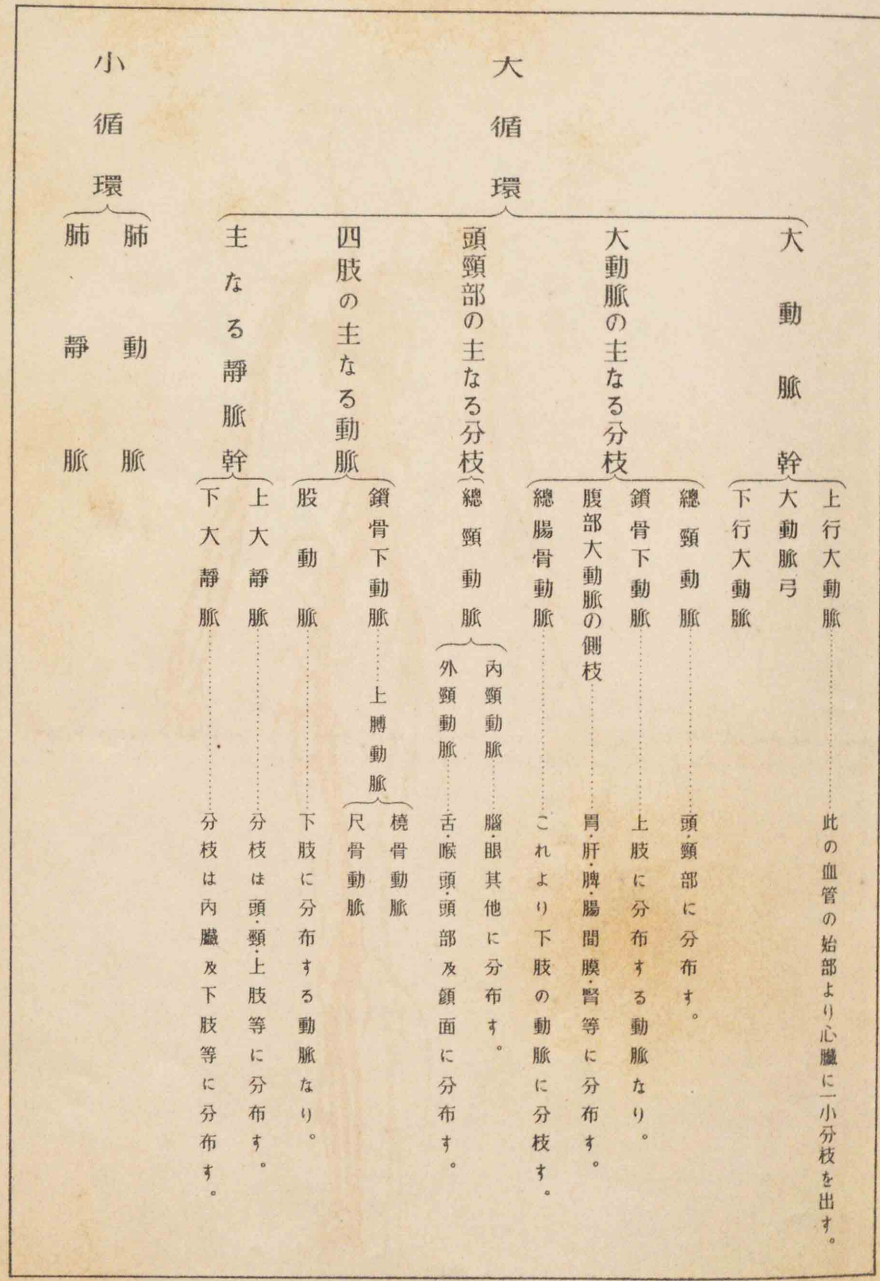 大循環
大動脈幹
上行大動脈……此の血管の始部より心臓に一小分枝を出す。
大動脈弓
下行大動脈
大動脈の主なる分枝
總頸動脈……頭・頸部に分布す。
鎖骨下動脈……上肢に分布する動脈なり。
腹部大動脈の側枝……胃・肝・脾・腸間膜・腎等に分布す。
總腸骨動脈……これより下肢の動脈に分枝す。
頭頸部の主なる分枝
總頸動脈
內頸動脈……腦・眼其他に分布す。
外頸動脈……舌・喉頭・頭部及顔面に分布す。
四肢の主なる動脈
鎖骨下動脈……上膊動脈
橈骨動脈
尺骨動脈
股動脈……下肢に分布する動脈なり。
主なる靜脈幹
上大靜脈……分枝は頭・頸・上肢等に分布す。
下大靜脈……分枝は內臟及下肢等に分布す。
小循環
肺動脈
肺靜脈